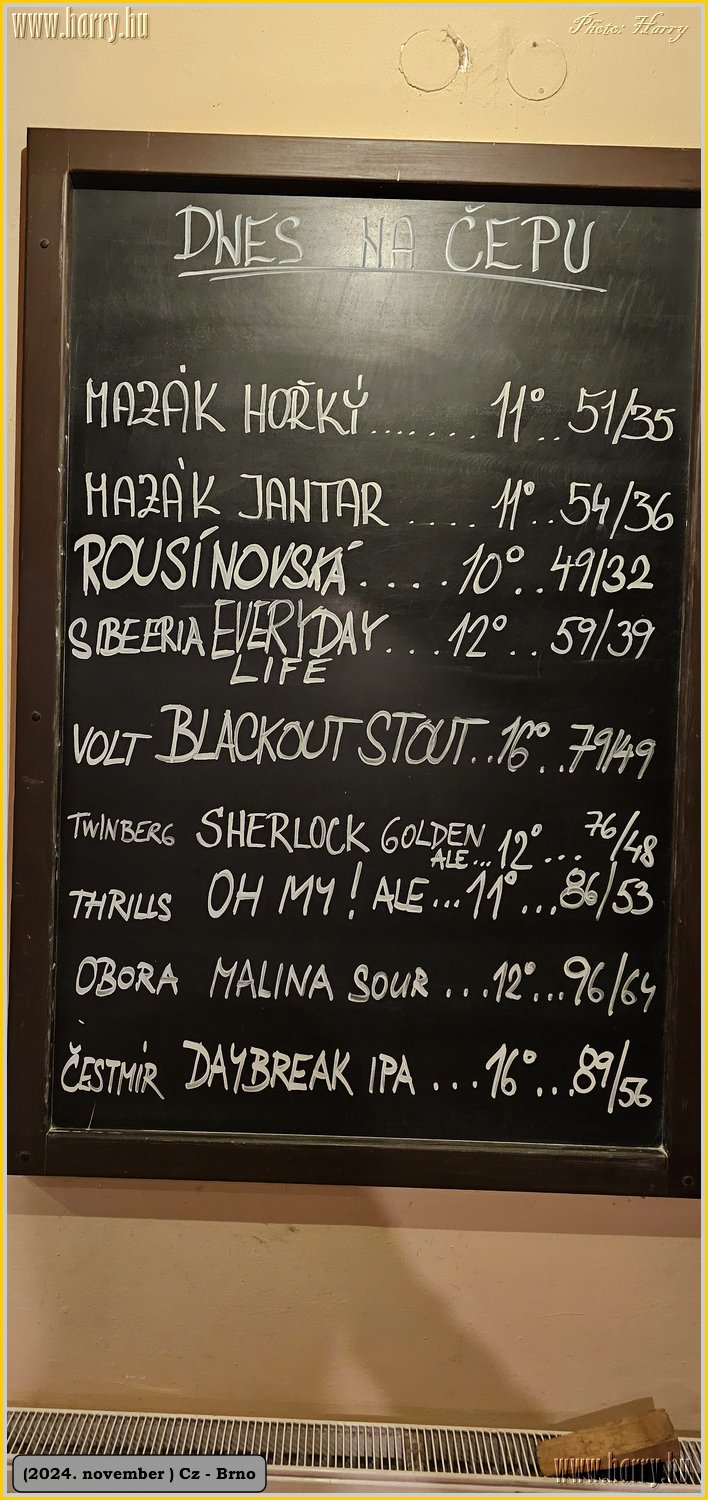 www.harry.hu
Photo: Harry
DNES NA ČEPU
MAZÁK HOŘKÝ....... 11°.. 51/35
MAZÁK JANTAR ..... 11°.. 54/36
ROUSÍNOVSKÁ..... 10°.. 49/32
SIBEERIA EVERYDAY... 12°.. 59/39
LIFE
VOLT BLACKOUT STOUT.. 16°.. 79/49
TWINBERG SHERLOCK GOLDEN
ALE... 12°... 76/48
THRILLS OH MY! ALE... 11°... 86/53
OBORA MALINA SOUR ... 12°... 96/64
ČESTMÍR DAYBREAK IPA ... 16°... 89/56
(2024. november ) Cz - Brno
www.harry.hu